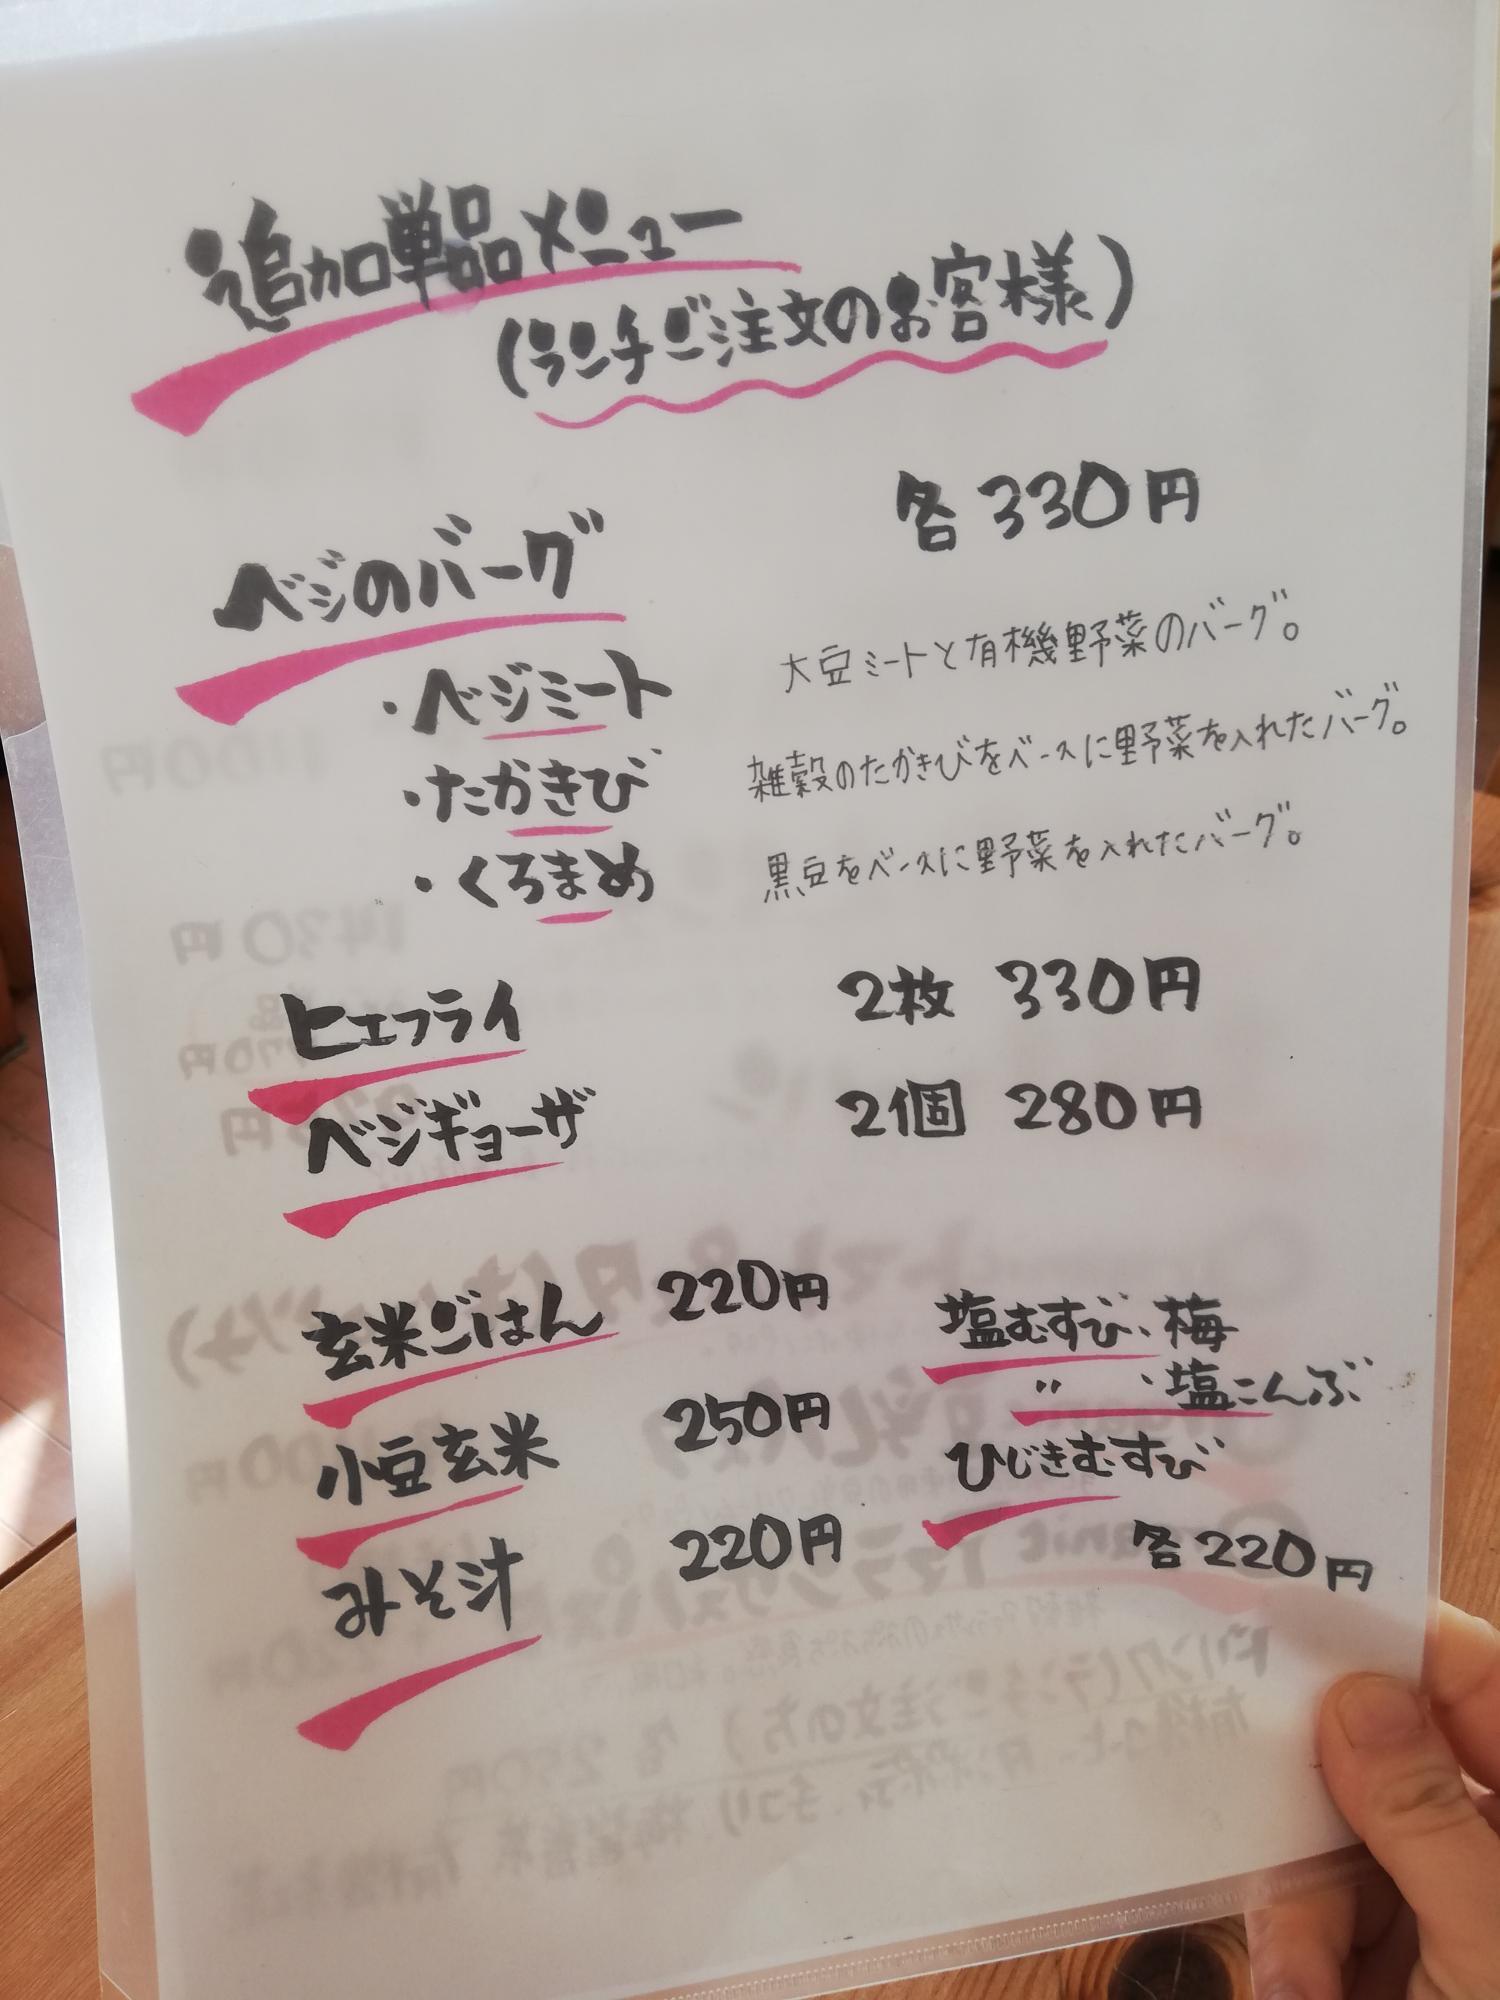 追加単品メニュー
(ランチご注文のお客様)
ベジのバーグ 各330円
・ベジミート 大豆ミートと有機野菜のバーグ。
・たかきび 雑穀のたかきびをベースに野菜を入れたバーグ。
・くろまめ 黒豆をベースに野菜を入れたバーグ。
ヒエフライ 2枚 330円
ベジギョーザ 2個 280円
玄米ごはん 220円
小豆玄米 250円
みそ汁 220円
塩むすび・梅
〃 ・塩こんぶ
ひじきむすび
各220円